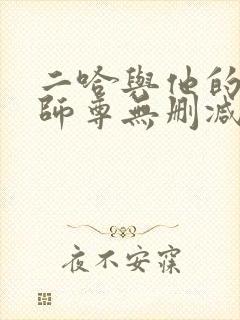 二哈與他的
師尊無刪減
夜不安寐